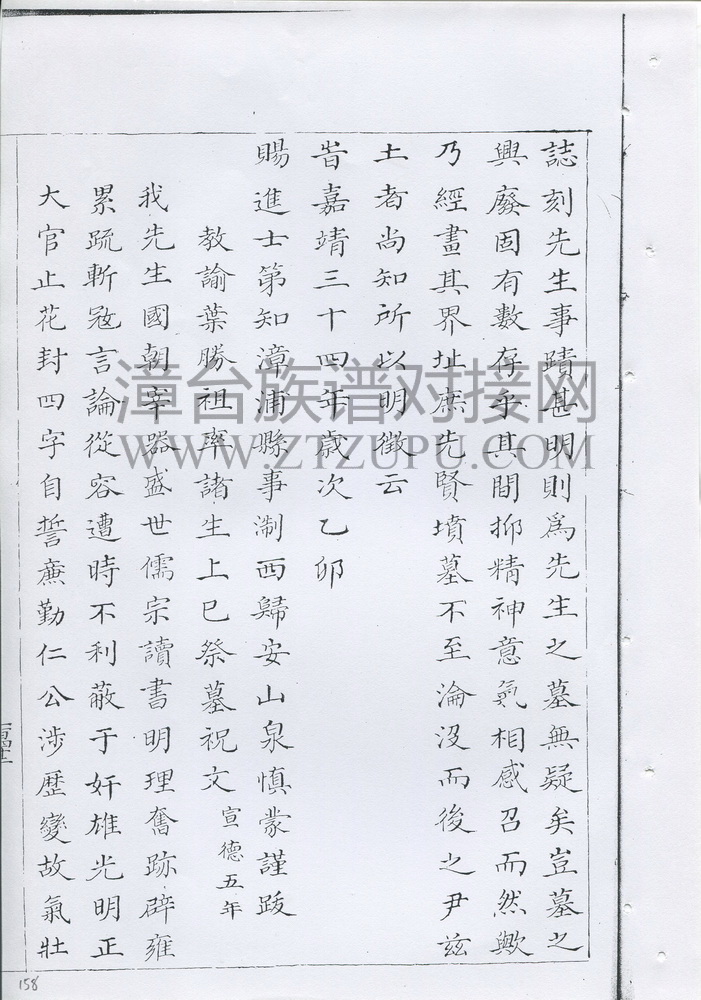 誌刻先生事蹟甚明則為先生之墓無疑矣豈墓之
興廢固有數存乎其間抑精神意氣相感召而然歟
乃經畫其界址庶先賢墳墓不至淪沒而後之尹茲
土者尚知所以明徵云
旹嘉靖三十四年歲次乙卯
賜進士第知漳浦縣事淛西歸安山泉慎蒙謹跋
教諭葉勝祖率諸生上巳祭墓祝文 宣德五年
我先生國朝宰器盛世儒宗讀書明理奮跡辟雍
累疏斬寇言論從容遭時不利蔽于奸雄光明正
大官止花封四字自誓廉勤仁公涉歷變故氣壯
漳台族谱对接网
WWW.ZTZUPU.COM
158